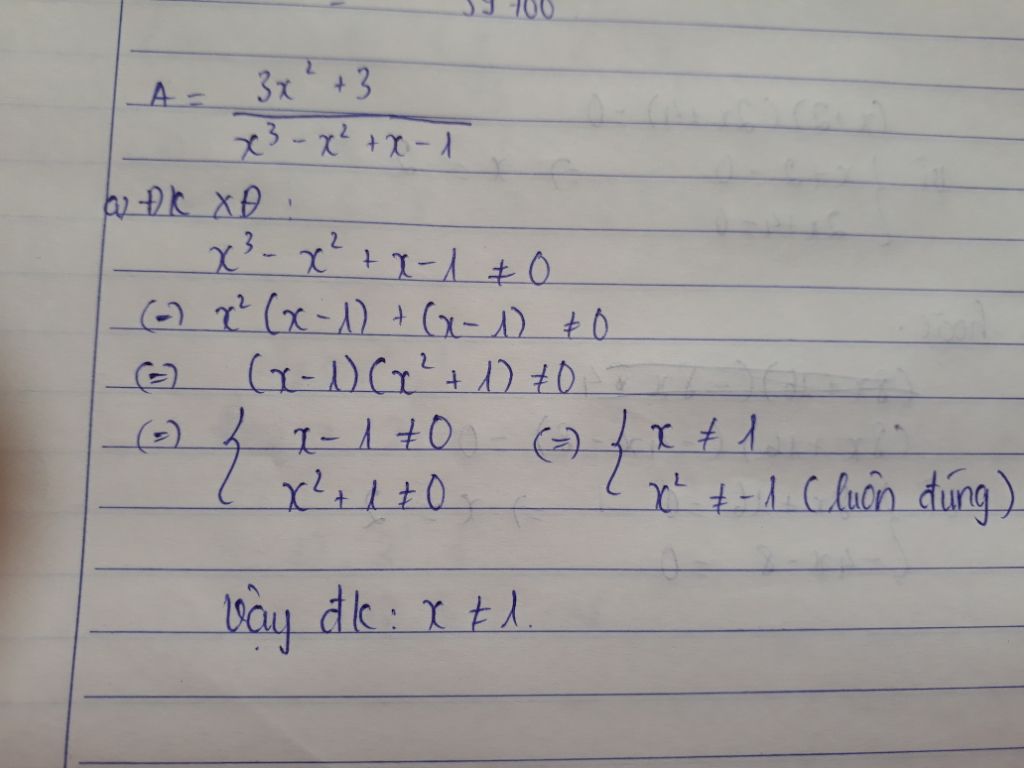 39 400
A = 3x² + 3 / x³ - x² + x - 1
a) ĐK XĐ :
x³ - x² + x - 1 ≠ 0
(=) x² (x - 1) + (x - 1) ≠ 0
(=) (x - 1)(x² + 1) ≠ 0
(=) { x - 1 ≠ 0 (=) { x ≠ 1
x² + 1 ≠ 0 x² ≠ -1 (luôn đúng)
Vậy đk : x ≠ 1.